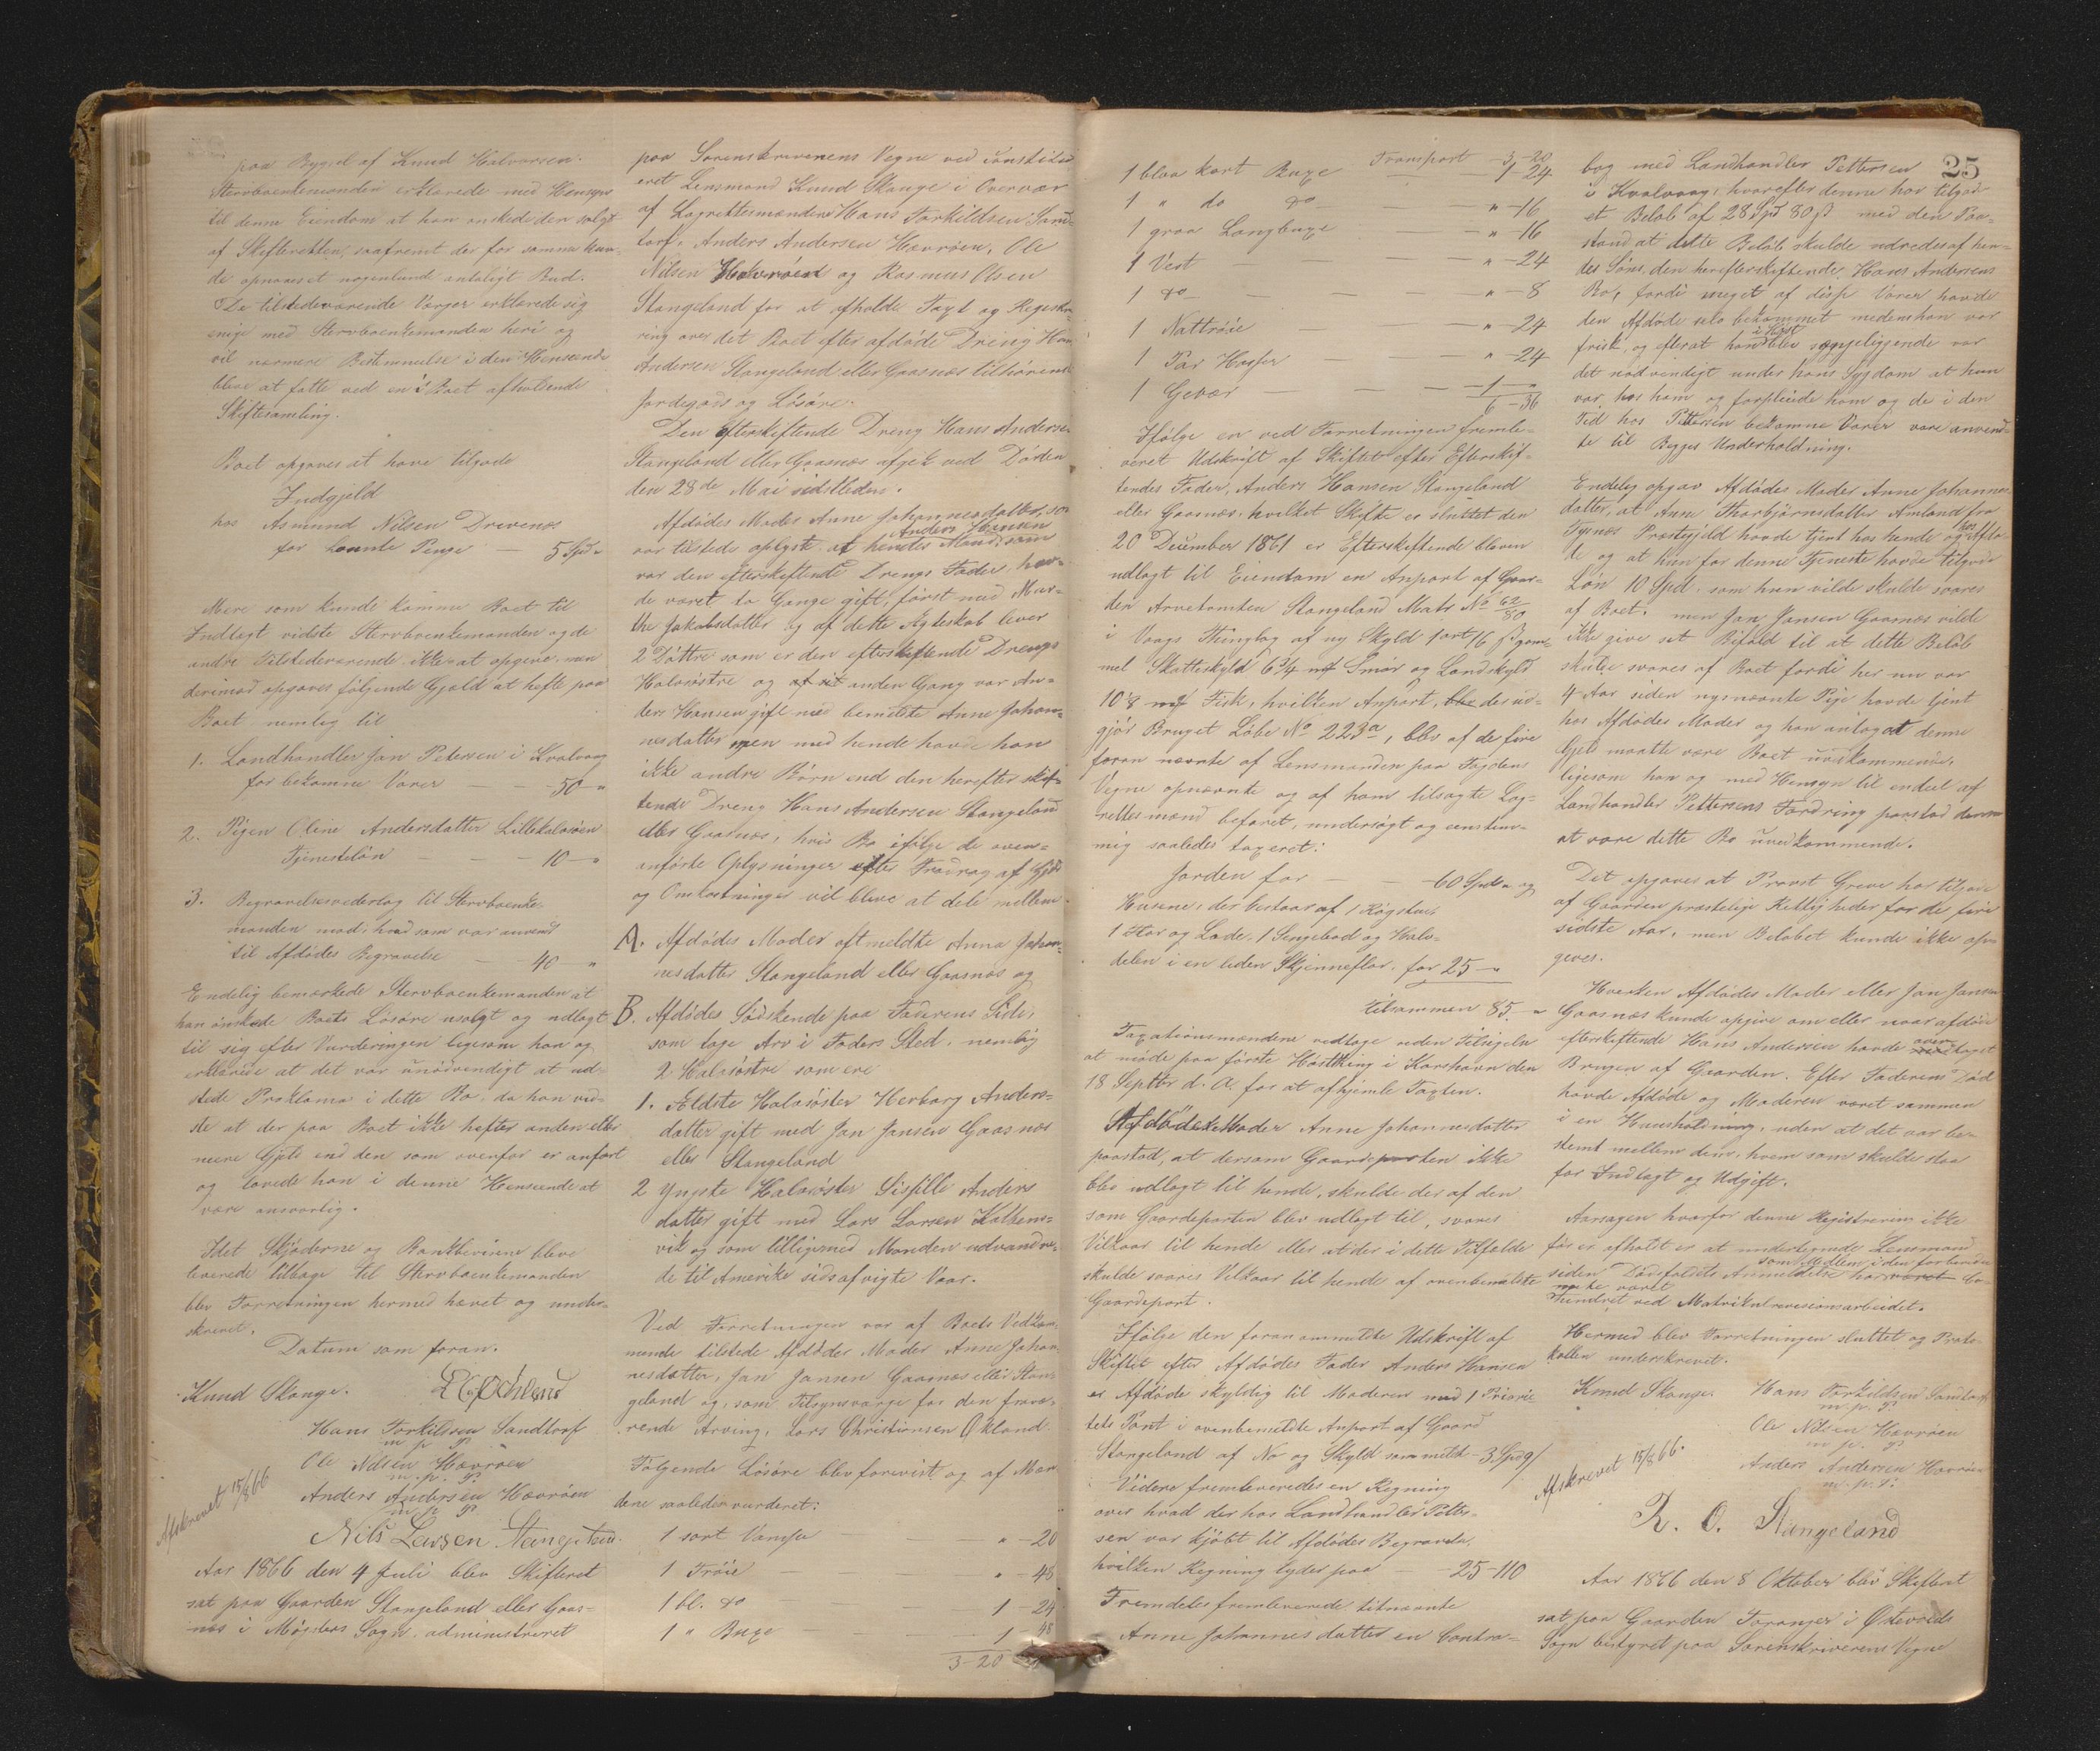 paa Bygsel af Knud Halvorsen.
Stervboenkemanden erklærede med Hensyn
til denne Eiendom at han ønskede den solgt
af Skifteretten, saafremt der for samme kun-
de opnaaes et nogenlunde antageligt Bud.
De tilstedeværende Verger erklærede sig
enige med Stervboenkemanden heri og
vil nærmere Bestemmelse i den Henseende
blive at fatte ved en i Boet afholdende
Skiftesamling.
Boet opgaves at have tilgode
Indgjeld
hos Asmund Nilsen Drevenæs
for laante Penge — 5 Spd "
Mere som kunde komme Boet til
Indtægt vidste Stervboenkemanden og de
andre Tilstedeværende ikke at opgive, men
derimod opgaves følgende Gjæld at hefte paa
Boet nemlig til
1. Landhandler Jan Petersen i Kvalvaag
for bekomne Varer — — 50 — "
2. Pigen Oline Andersdatter Lillekalsøen
Tjenesteløn — — — 10 — "
3. Begravelsesvederlag til Stervboenke-
manden mod hvad som var anvendt
til Afdødes Begravelse — 40 — "
Endelig bemærkede Stervboenkemanden at
han ønskede Boets Løsøre usolgt og udlagt
til sig efter Vurderingen ligesom han og
erklærede at det var unødvendigt at ud-
stede Proklama i dette Bo, da han vid-
ste at der paa Boet ikke hefter anden eller
mere Gjæld end den som ovenfor er anført
og lovede han i denne Henseende at
være ansvarlig.
Idet Skjøderne og Bankbevisene bleve
leverede tilbage til Stervboenkemanden
blev Forretningen hermed hævet og under-
skrevet.
Datum som foran.
Knud Stange.
Hans Torkildsen Sandtorf
m p P
Ole Nilsen Hævrøen
m. p. P.
Anders Andersen Hævrøen
m p P
Afskrevet 15/8 66
Nils Larsen Stangeland.
Aar 1866 den 4 Juli blev Skifteret
sat paa Gaarden Stangeland eller Gaas-
næs i Møgsters Sogn administreret
paa Sorenskriverens Vegne ved constitu-
eret Lensmand Knud Stange i Overvær
af Lagrettesmændene Hans Torkildsen Sand-
torf, Anders Andersen Hævrøen, Ole
Nilsen Hævrøen og Rasmus Olsen
Stangeland for at afholde Taxt og Registre-
ring over det Boet efter afdøde Dreng Hans
Andersen Stangeland eller Gaasnæs tilhørende
Jordegods og Løsøre.
Den Efterskiftende Dreng Hans Andersen
Stangeland eller Gaasnæs afgik ved Døden
den 28de Mai sidstleden.
Afdødes Moder Anne Johannesdatter, som
var tilstede oplyste at hendes Mand Anders Hansen som
var den efterskiftende Drengs Fader, hav-
de været to Gange gift, først med Mar-
the Jakobsdatter og af dette Ægteskab lever
2 Døttre som er den efterskiftende Drengs
Halvsøstre og anden Gang var An-
ders Hansen gift med bemeldte Anne Johan-
nesdatter men med hende havde han
ikke andre Børn end den herefterskif-
tende Dreng Hans Andersen Stangeland
eller Gaasnæs, hvis Bo ifølge de oven-
anførte Oplysninger efter Fradrag af Gjæld
og Omkostninger vil blive at dele mellem
A. Afdødes Moder oftmeldte Anna Johan-
nesdatter Stangeland eller Gaasnæs og
B. Afdødes Sødskende paa Faderens Side,
som tage Arv i Faders Sted, nemlig
2 Halvsøstre som ere
1. Ældste Halvsøster Herborg Anders-
datter gift med Jan Jansen Gaasnæs
eller Stangeland
2 Yngste Halvsøster Sisselle Anders
datter gift med Lars Larsen Kolbens-
vik og som tilligemed Manden udvandre-
de til Amerika sidsafvigte Vaar.
Ved Forretningen var af Boets Vedkom-
mende tilstede Afdødes Moder Anne Johan-
nesdatter, Jan Jansen Gaasnæs eller Stan-
geland og, som Tilsynsværge for den fravæ-
rende Arving, Lars Christiansen Økland.
Følgende Løsøre blev forevist og af Mæn-
dene saaledes vurderet:
1 sort Vamse — " — 20
1 Trøie — " — 48
1 bl. do — 1 — 24
1 " Buxe — 1 48
3 — 20
25
Transport — 3 — 20
1 blaa kort Buxe — 1 — 24
1 " do do — " — 16
1 graa Langbuxe — " — 16
1 Vest — " — 24
1 do — " — 8
1 Nattrøie — " — 24
1 Par Hoser — " — 24
1 Gevær — 1 — "
6 — 36
Ifølge en ved Forretningen fremle-
veret Udskrift af Skiftet efter Efterskif-
tendes Fader, Anders Hansen Stangeland
eller Gaasnæs, hvilket Skifte er sluttet den
20 December 1861 er Efterskiftende bleven
udlagt til Eiendom en Anpart af Gaar-
den Arvetomten Stangeland Matr No 62/80
i Vaags Thinglag af ny Skyld 1 ort 16 ß gam-
mel Skatteskyld 6 3/4 Smør og Landskyld
10 1/8 Fisk, hvilken Anpart, der ud-
gjør Bruget Løbe No 223a, blev af de fire
foran nævnte af Lensmanden paa Fogdens
Vegne opnævnte og af ham tilsagte Lag-
rettesmænd befaret, undersøgt og eenstem-
mig saaledes taxeret:
Jorden for — — 60 Spd " og
Husene, der bestaar af 1 Røgstue,
1 Stor og Lade, 1 Sengebod og Halv-
delen i en liden Skjenneflor. for 25 — "
tilsammen 85. — "
Taxationsmændene vedtoge uden Tilsigeln
at møde paa første Høstthing i Korshavn den
18 Septbr d. A. for at afhjemle Taxten.
Afdødes Moder Anne Johannesdatter
paastod, at dersom Gaardeparten ikke
blev udlagt til hende, skulde der af den
som Gaardeparten blev udlagt til, svares
Vilkaar til hende eller at der i dette Tilfælde
skulde svares Vilkaar til hende af ovenbemeldte
Gaardepart.
Ifølge den foran anmeldte Udskrift af
Skiftet efter Afdødes Fader Anders Hansen
er Afdøde skyldig til Moderen med 1 Priorie
tets Pant i ovenbemeldte Anpart af Gaard
Stangeland af No og Skyld som meldt — 3 Spd 9/
Videre fremleveredes en Regning
over hvad der hos Landhandler Petter-
sen var kjøbt til Afdødes Begravelse
hvilken Regning lyder paa — 25 — 110
Fremdeles fremleverede titnævnte
Anne Johannesdatter en Contra-
bog med Landhandler Pettersen
i Kvalvaag, hvorefter denne har tilgod-
et Beløb af 28 Spd 80 ß med den Paa-
stand at dette Beløb skulde udredes af hen-
des Søns, den herefterskiftende, Hans Andersens
Bo, fordi meget af disse Varer havde
den Afdøde selv bekommet medens han var
frisk, og efterat han i Høst blev sygeliggende var
det nødvendigt under hans Sygdom at hun
var hos ham og forpleiede ham og de i den
Tid hos Pettersen bekomne Varer vare anvend-
te til Begges Underholdning.
Endelig opgav Afdødes Moder Anne Johannes-
datter, at Anne Thorbjørnsdatter Amland fra
Tysnæs Præstegjæld havde tjent hos hende og hos Afdø-
de og at hun for denne Tjeneste havde tilgode
Løn 10 Spd. som hun vilde skulde svares
af Boet, men Jan Jansen Gaasnæs vilde
ikke give sit Bifald til at dette Beløb
skulde svares af Boet fordi her nu var
4 Aar siden nysnævnte Pige havde tjent
hos Afdødes Moder og han antog at denne
Gjeld maatte være Boet uvedkommende,
ligesom han og med Hensyn til endeel af
Landhandler Pettersens Fordring paastod denne
at være dette Bo uvedkommende.
Det opgaves at Provst Greve har tilgode
af Gaarden præstelige Rettigheder for de fire
sidste Aar, men Beløbet kunde ikke op-
gives.
Hverken Afdødes Moder eller Jan Jansen
Gaasnæs kunde opgive om eller naar afdøde
efterskiftende Hans Andersen havde overtaget
Brugen af Gaarden. Efter Faderens Død
havde Afdøde og Moderen været sammen
i en Huusholdning, uden at det var be-
stemt mellem dem, hvem som skulde staa
for Indtægt og Udgift.
Aarsagen hvorfor denne Registrering ikke
før er afholdt er at undertegnede Lensmand
siden Dødsfaldets Anmeldelse har som Medlem i den forberedende
været
hindret ved Matrikulrevisionsarbeidet.
Hermed blev Forretningen sluttet og Proto-
kollen underskrevet.
Knud Stange. Hans Torkildsen Sandtorf
m. p. P.
Ole Nilsen Hævrøen
m p. P
Anders Andersen Hævrøen
m. p. P.
Afskrevet 15/8 66.
R. O. Stangeland
Aar 1866 den 8 Oktober blev Skifteret
sat paa Gaarden Toranger i Østervold
Sogn bestyret paa Sorenskriverens Vegne